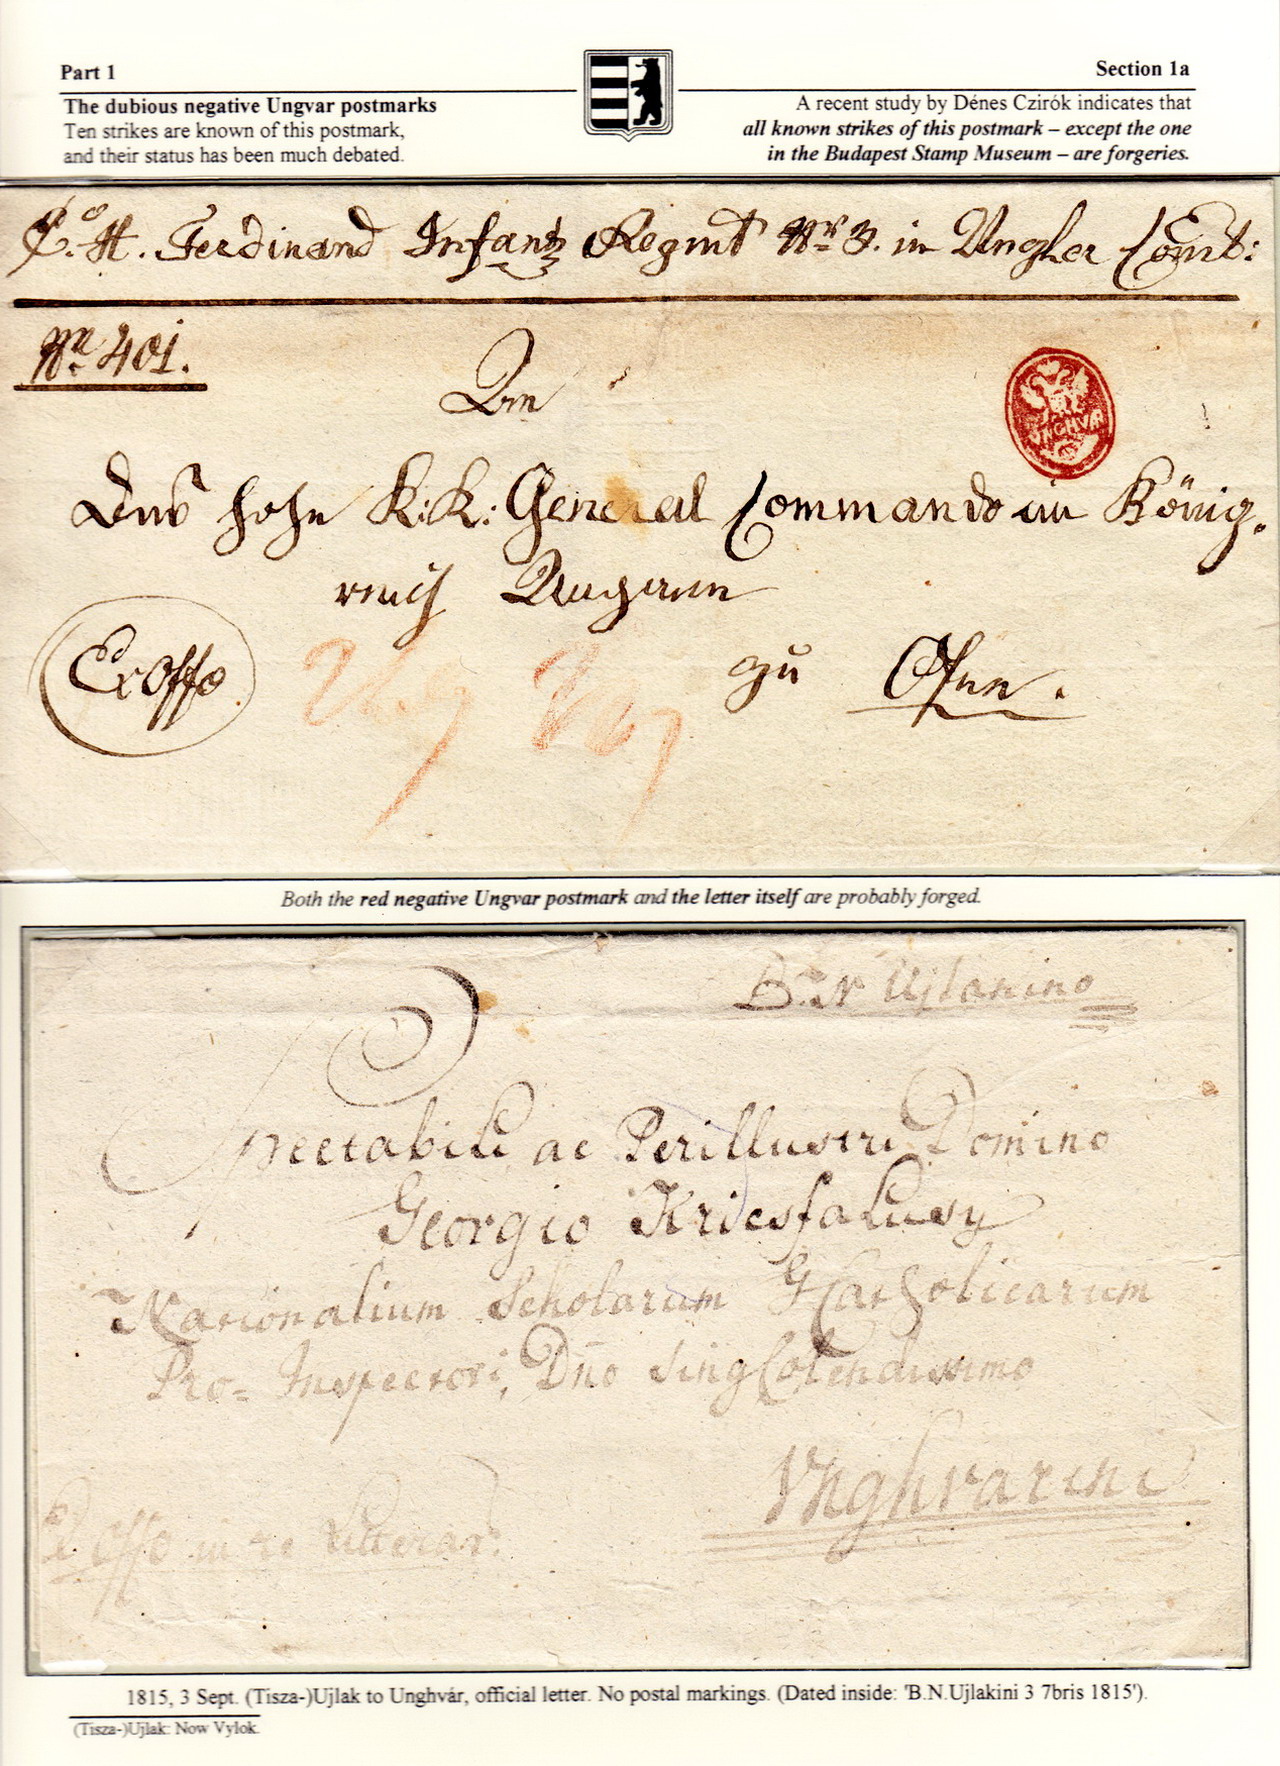 Part 1
Section 1a
The dubious negative Ungvar postmarks
Ten strikes are known of this postmark,
and their status has been much debated.
A recent study by Dénes Czirók indicates that
all known strikes of this postmark – except the one
in the Budapest Stamp Museum – are forgeries.
E. H. Ferdinand Infant Regmt Nr 3. in Ungher Comt:
Nro 401.
An
UNGHVAR
Das hohe K: K: General Commando im König-
reich Ungarn
Ex Offo
zu Ofen.
Both the red negative Ungvar postmark and the letter itself are probably forged.
B. N Ujlakino
Spectabili ac Perillustri Domino
Georgio Kricsfalusy
Nationalium Scholarum GCatholicarum
Pro- Inspectori, Dno sing Colendissimo
Unghvarini
Ex offo in re Litterar:
1815, 3 Sept. (Tisza-)Ujlak to Unghvár, official letter. No postal markings. (Dated inside: 'B.N.Ujlakini 3 7bris 1815').
(Tisza-)Ujlak: Now Vylok.